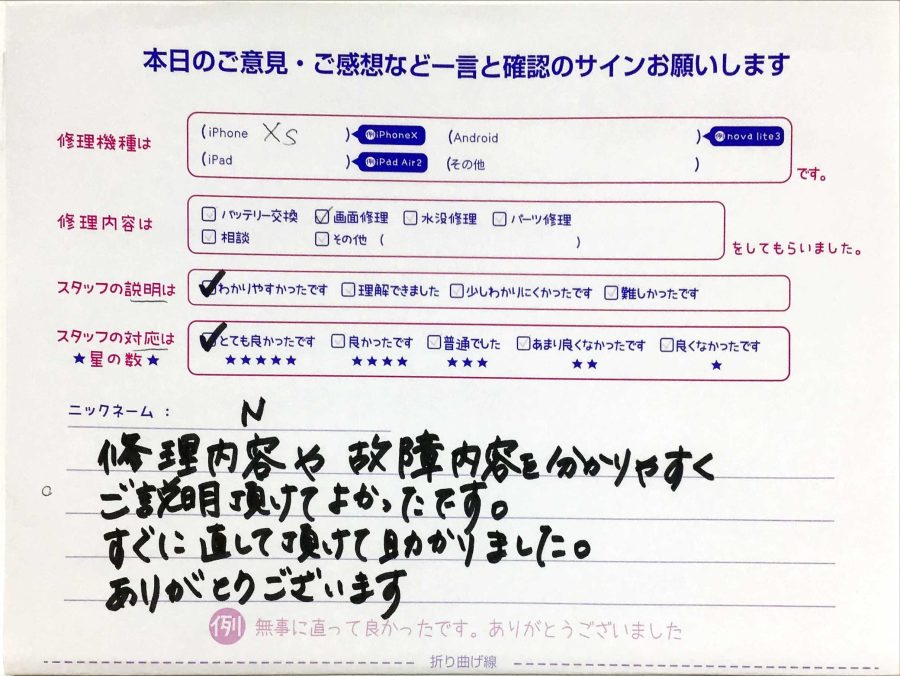 本日のご意見・ご感想など一言と確認のサインお願いします
修理機種は (iPhone XS ) 例iPhoneX (Android ) 例nova lite3
(iPad ) 例iPad Air2 (その他 ) です。
修理内容は □バッテリー交換 ☑画面修理 □水没修理 □パーツ修理
□相談 □その他 ( ) をしてもらいました。
スタッフの説明は ☑わかりやすかったです □理解できました □少しわかりにくかったです □難しかったです
スタッフの対応は ☑とても良かったです □良かったです □普通でした □あまり良くなかったです □良くなかったです
★星の数★ ★★★★★ ★★★★ ★★★ ★★ ★
ニックネーム： N
修理内容や故障内容を分かりやすく
ご説明頂けてよかったです。
すぐに直して頂けて助かりました。
ありがとうございます
例 無事に直って良かったです。ありがとうございました
折り曲げ線